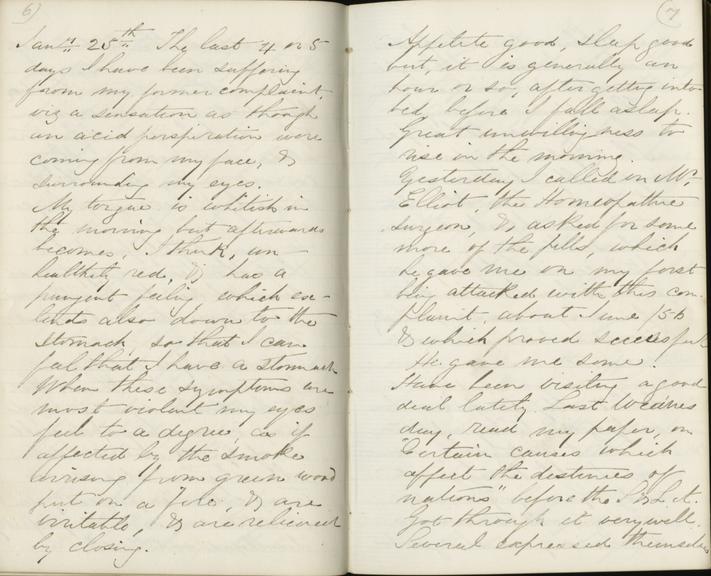 6)
Jany 25th The last 4 or 5
days I have been suffering
from my former complaint,
viz a sensation as though
an acid perspiration were
coming from my face, &
surrounding my eyes.
My tongue is whitish in
the morning but afterwards
becomes, I think, un-
healthily red, & has a
pungent feeling which ex-
tends also down to the
stomach, so that I can
feel that I have a stomach
When these symptoms are
most violent my eyes
feel to a degree, as if
affected by the smoke
arising from green wood
put on a fire, & are
irritable, & are relieved
by closing.
(7
Appetite good, sleep good
but, it is generally an
hour or so, after getting into
bed, before I fall asleep.
Great unwillingness to
rise in the morning.
Yesterday I called on Mr.
Elliot, the Homeopathic
surgeon, & asked for some
more of the pills, which
he gave me on my first
being attacked with this com-
plaint, about June /56
& which proved successful
He gave me some.
Have been visiting a good
deal lately. Last Wednes
day, read my paper, on
"Certain causes which
affect the destinies of
nations" before the
Got through it very well.
Several expressed themselves